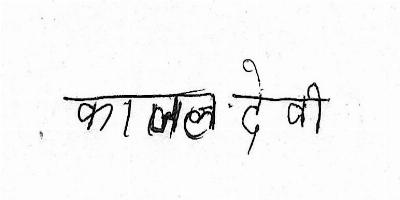 काजल देवी